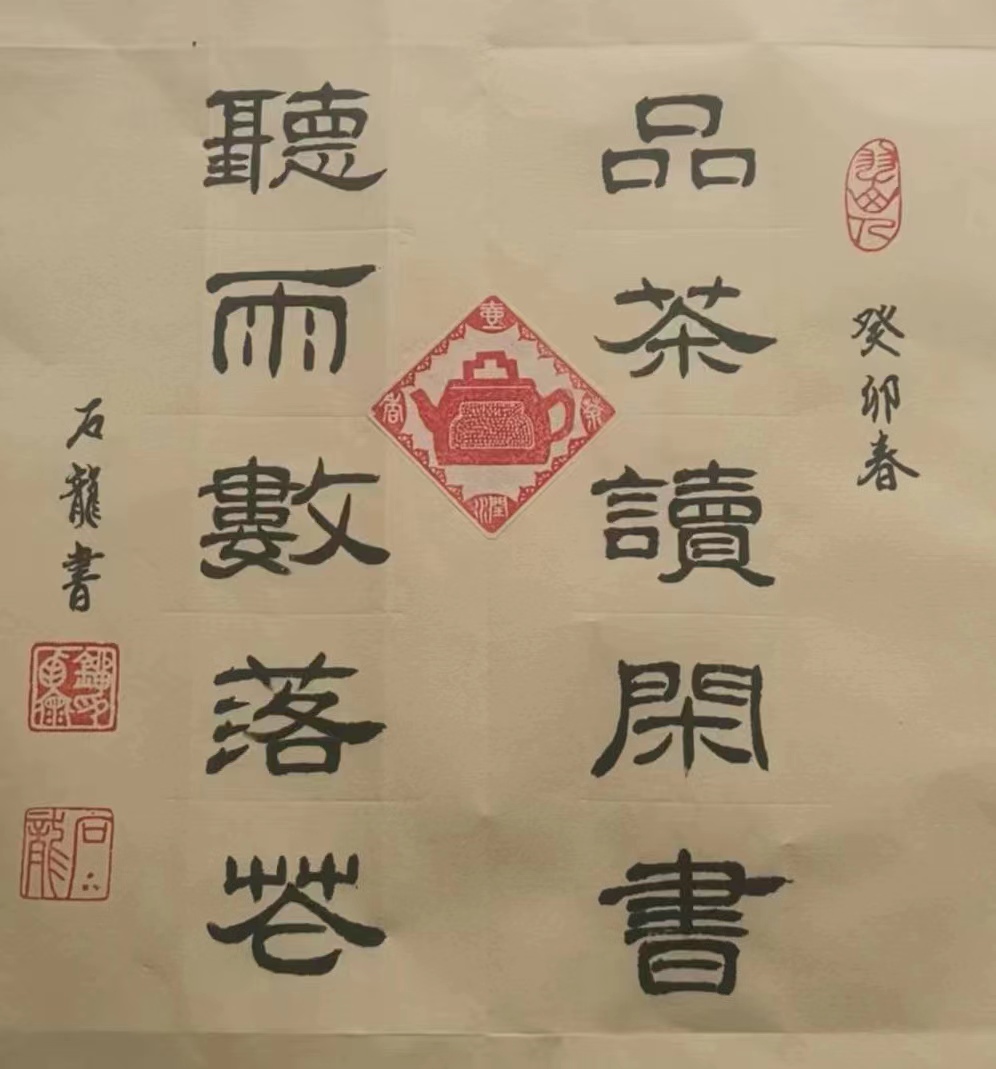 癸卯春
品茶讀閑書
聽雨數落花
石龍書
壺
茶
石龍